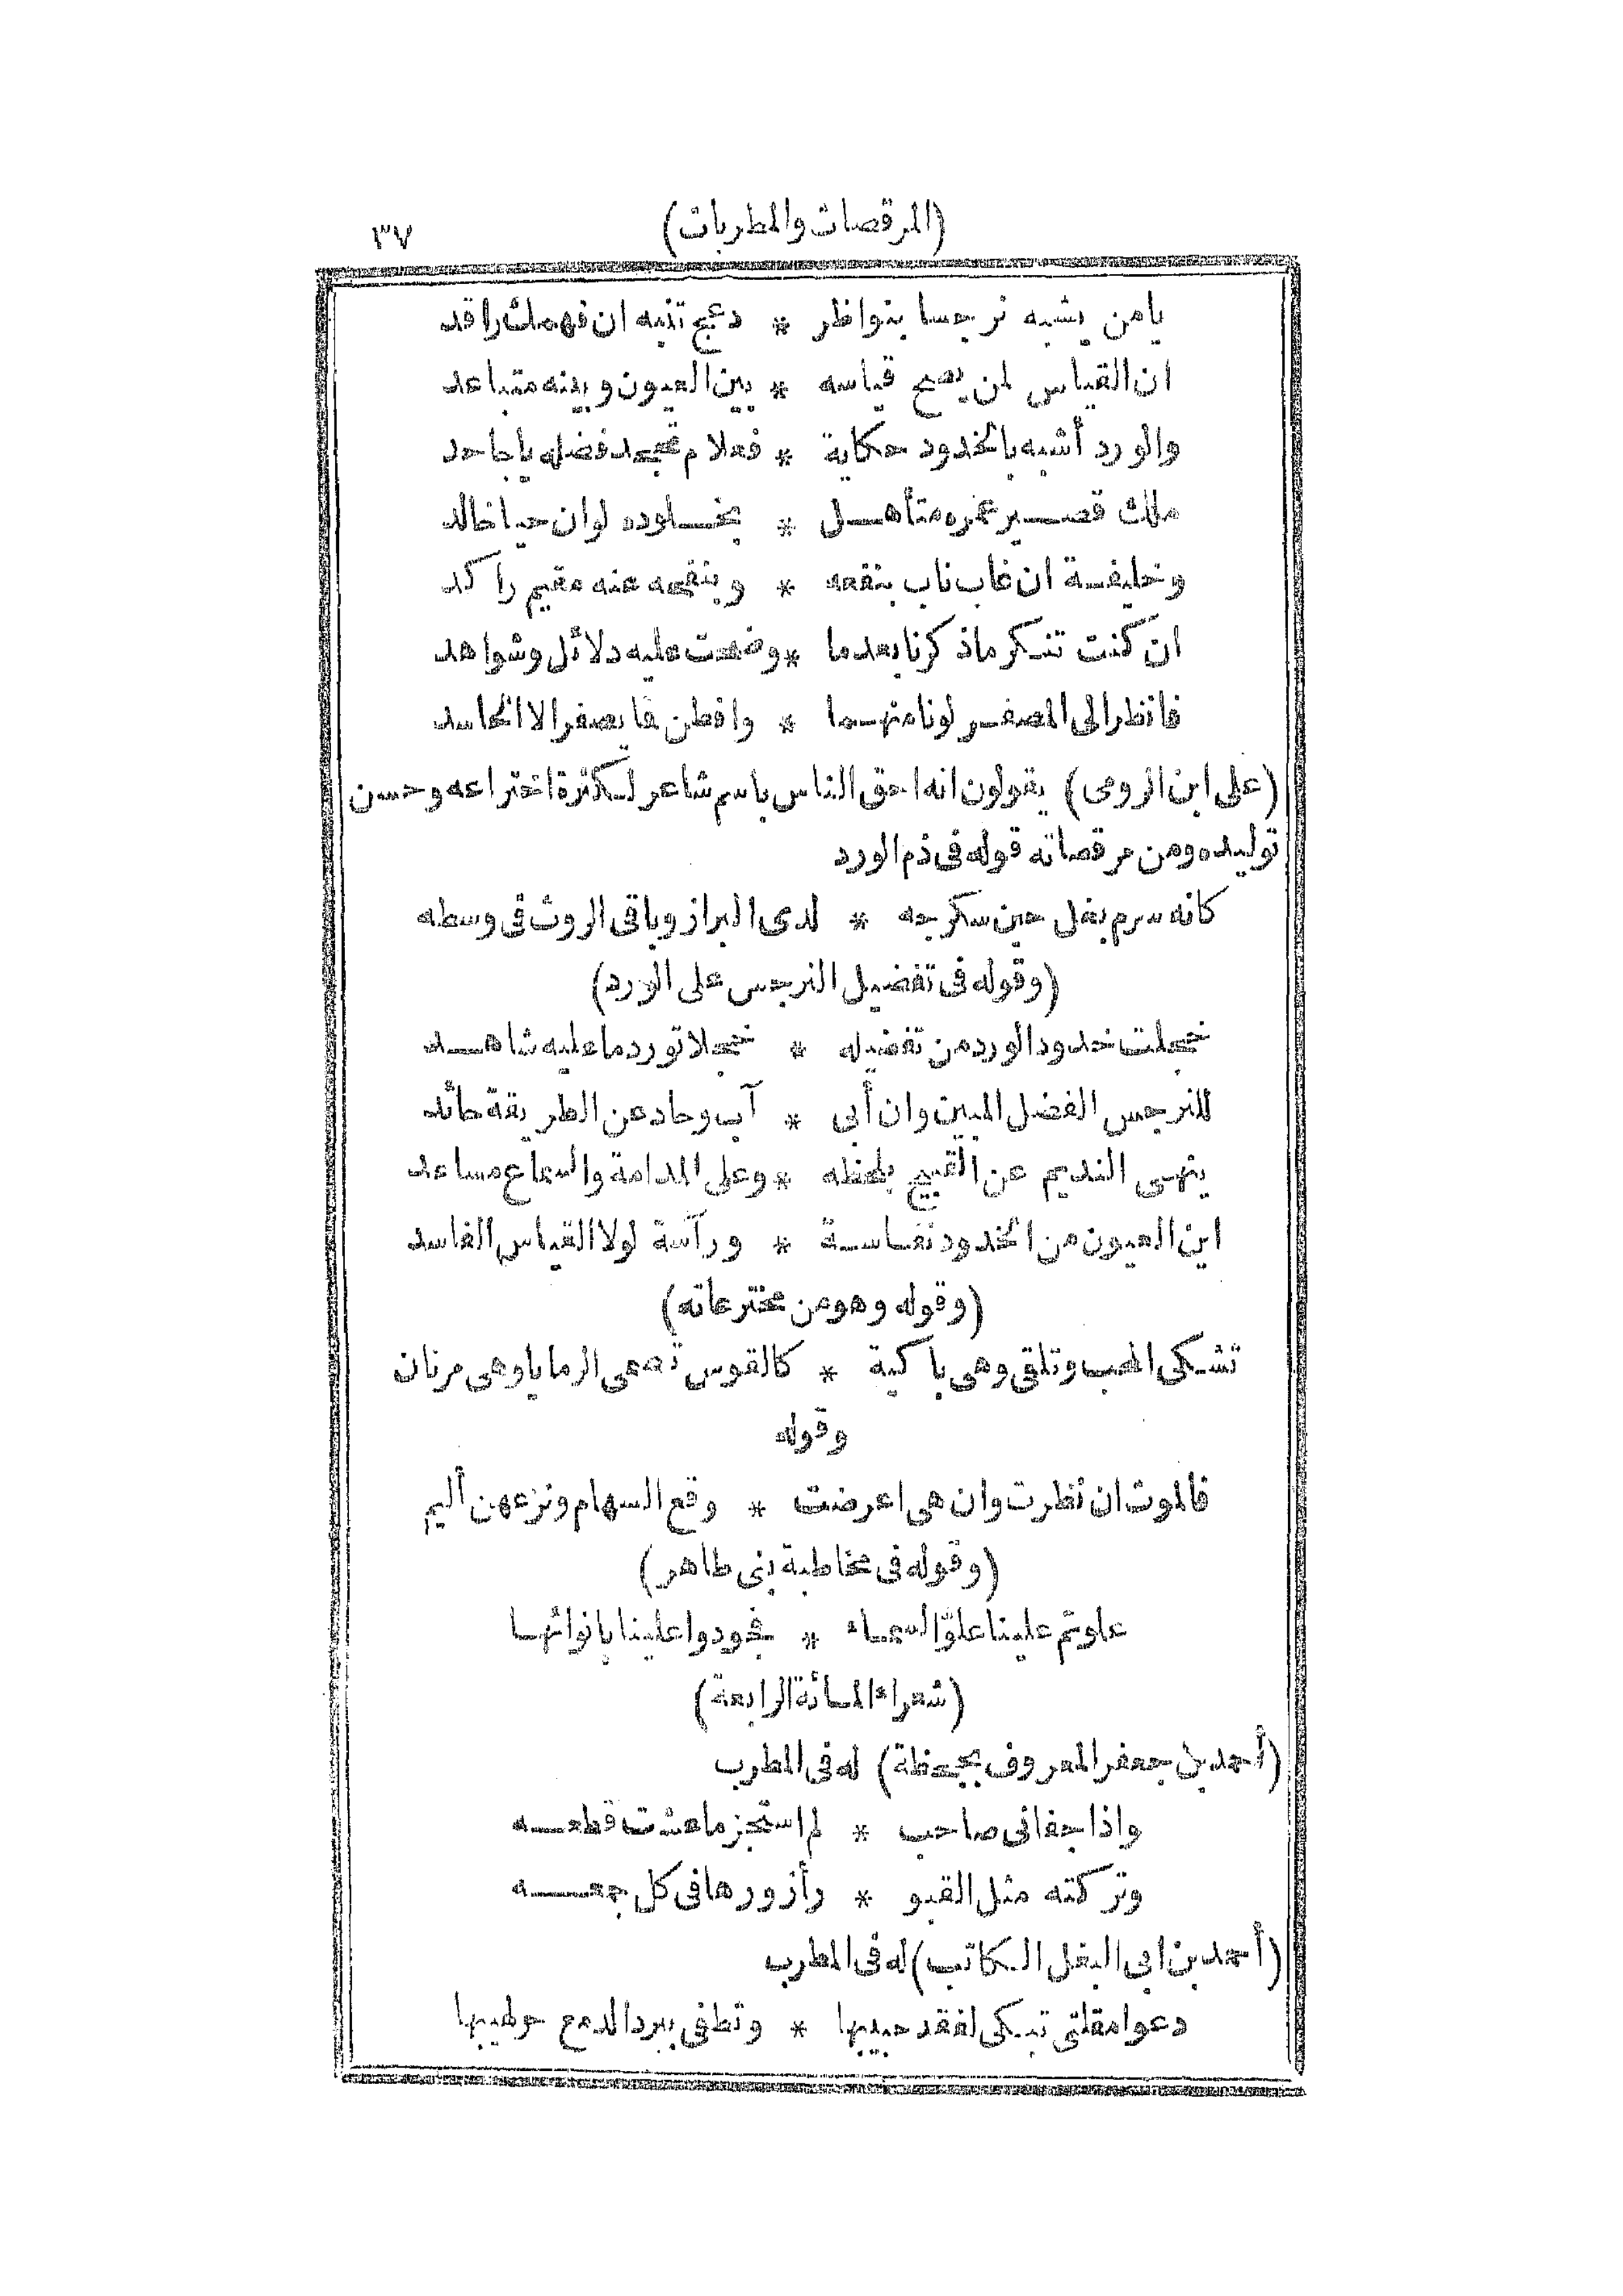 (المرقصات والمطربات) ٣٧
يامن يشبه نرجسا بنواظر * دعج تنبه ان فهمك راقد
ان القياس لمن يصح قياسه * بين العيون وبينه متباعد
والورد أشبه بالخدود حكاية * فعلام تجحد فضله ياجاحد
ملك قصير عمره متأهل * بخلوده لوان حيا خالد
وخليفة ان غاب ناب بنفعه * وبنفحه عنه مقيم راكد
ان كنت تنكر ماذكرنا بعدما * وضحت عليه دلائل وشواهد
فانظر الى المصفر لونا منهما * وافطن فما يصفر الا الحاسد
(على ابن الرومى) يقولون انه احق الناس باسم شاعر لكثرة اختراعه وحسن
توليده ومن مرقصاته قوله فى ذم الورد
كانه سرم بغل حين سكرجه * لدى البراز وباقى الروث فى وسطه
(وقوله فى تفضيل النرجس على الورد)
خجلت خدود الورد من تفضيله * خجلا تورد ما عليه شاهد
للنرجس الفضل المبين وان أبى * آب وحاد عن الطريقة حائد
ينهى النديم عن القبيح بلحظه * وعلى المدامة والسماع مساعد
اين العيون من الخدود نفاسة * ورآسة لولا القياس الفاسد
(وقوله وهو من مخترعاته)
تشكى المحب وتلقى وهى باكية * كالقوس تصمى الرمايا وهى مرنان
وقوله
فالموت ان نظرت وان هى اعرضت * وقع السهام ونزعهن أليم
(وقوله فى مخاطبة بنى طاهر)
علوتم علينا علوّ السماء * فجودوا علينا بانوائها
(شعراء المائة الرابعة)
(أحمد بن جعفر المعروف بجحظة) له فى المطرب
واذا جفانى صاحب * لم استجز ما عشت قطعه
وتركته مثل القبو * رأزورها فى كل جمعه
(أحمد بن ابى البغل الكاتب) له فى المطرب
دعوا مقلتى تبكى لفقد حبيبها * وتطفى ببرد الدمع حر لهيبها